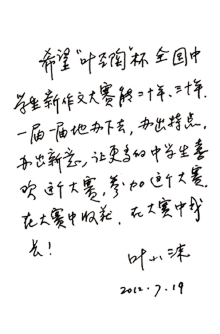 希望“叶圣陶”杯全国中
学生新作文大赛能二十年、三十年、
一届一届地办下去，办出特点，
办出新意，让更多的中学生喜
欢这个大赛，参加这个大赛，
在大赛中收获，在大赛中成
长！
叶小沫
2012.7.19